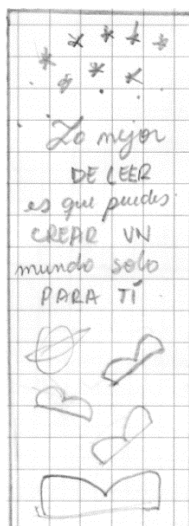 Lo mejor
DE LEER
es que puedes
CREAR UN
mundo solo
PARA TÍ